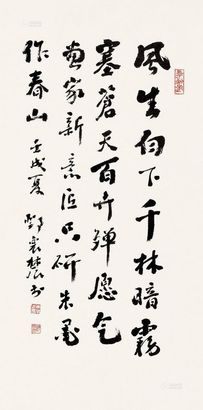 風生白下千林暗霧
塞蒼天百卉殫愿乞
畫家新意匠只研朱墨
作春山 壬戌夏